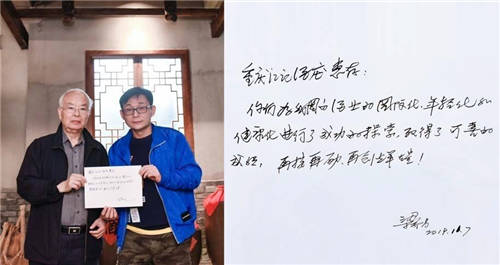 重庆江记酒庄 惠存：
你们为我国白酒业的国际化、年轻化和
健康化进行了成功的探索，取得了可喜的
成绩，再接再励，再创辉煌！
2019.11.7